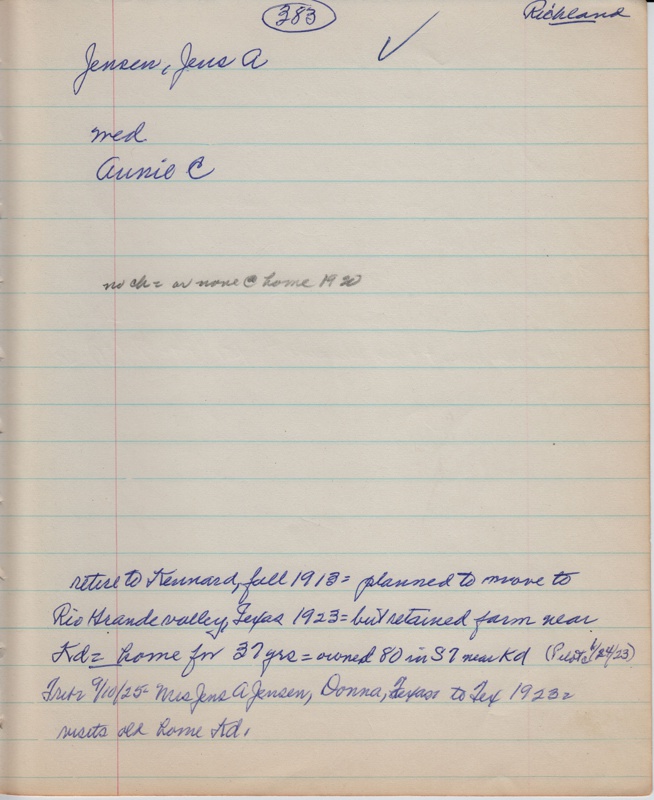 383
Richland
Jensen, Jens A
med.
Annie C
no ch = or none @ home 1920
retire to Kennard, fall 1913 = planned to move to
Rio Grande valley, Texas 1923 = but retained farm near
Kd = home for 37 yrs = owned 80 in S7 near Kd (Pilot 1/24/23)
9/10/25 = Mrs Jens A Jensen, Donna, Texas = to Tex 1923 =
visits old home Kd.